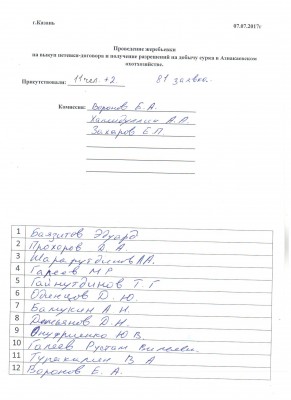 г.Казань 07.07.2017г
Проведение жеребьевки
на выкуп путевки-договора и получение разрешений на добычу сурка в Азнакаевском
охотхозяйстве.
Присутствовали: 11 чел +2 81 заявка.
Комиссия: Воронов Е.А.
Захаров Е.П
1 Баязитов Эдуард
2 Прохоров А
3 Шарафутдинов А.
4 Гареев М Р
5 Гайнутдинов Т. Г
6 Одинцов Ю.
7 А Н.
8 Демьянов Д.Н.
9 Онуприенко Ю В.
10 Галеев Рустам
11 В А
12 Воронов Е. А.